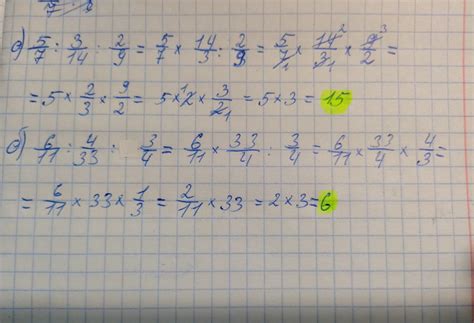 а) 5/7 : 3/14 : 2/9 = 5/7 × 14/3 : 2/9 = 5/7₁ × 14²/3₁ × 9³/2 =
= 5 × 2/3 × 9/2 = 5 × ¹2 × 3/2₁ = 5 × 3 = 15
б) 6/11 : 4/33 : 3/4 = 6/11 × 33/4 : 3/4 = 6/11 × 33/4 × 4/3 =
= 6/11 × 33 × 1/3 = 2/11 × 33 = 2 × 3 = 6